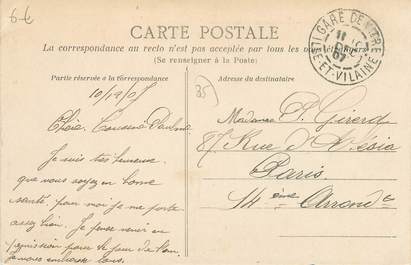 6-£
CARTE POSTALE
La correspondance au recto n'est pas acceptée par tous les pays étrangers
(Se renseigner à la Poste)
GARE DE VITRE
ILLE-ET-VILAINE
11
07
Partie réservée à la correspondance
Adresse du destinataire
35
10/12/07
Chère Cousine Pauline
Je suis très heureuse
que vous soyez en bonne
santé, pour moi je me porte
assez bien. Je pense venir en
permission pour le jour de l'an
Je vous embrasse tous.
Madame P. Girerd
87 Rue d'Alésia
Paris
14 ème Arrond